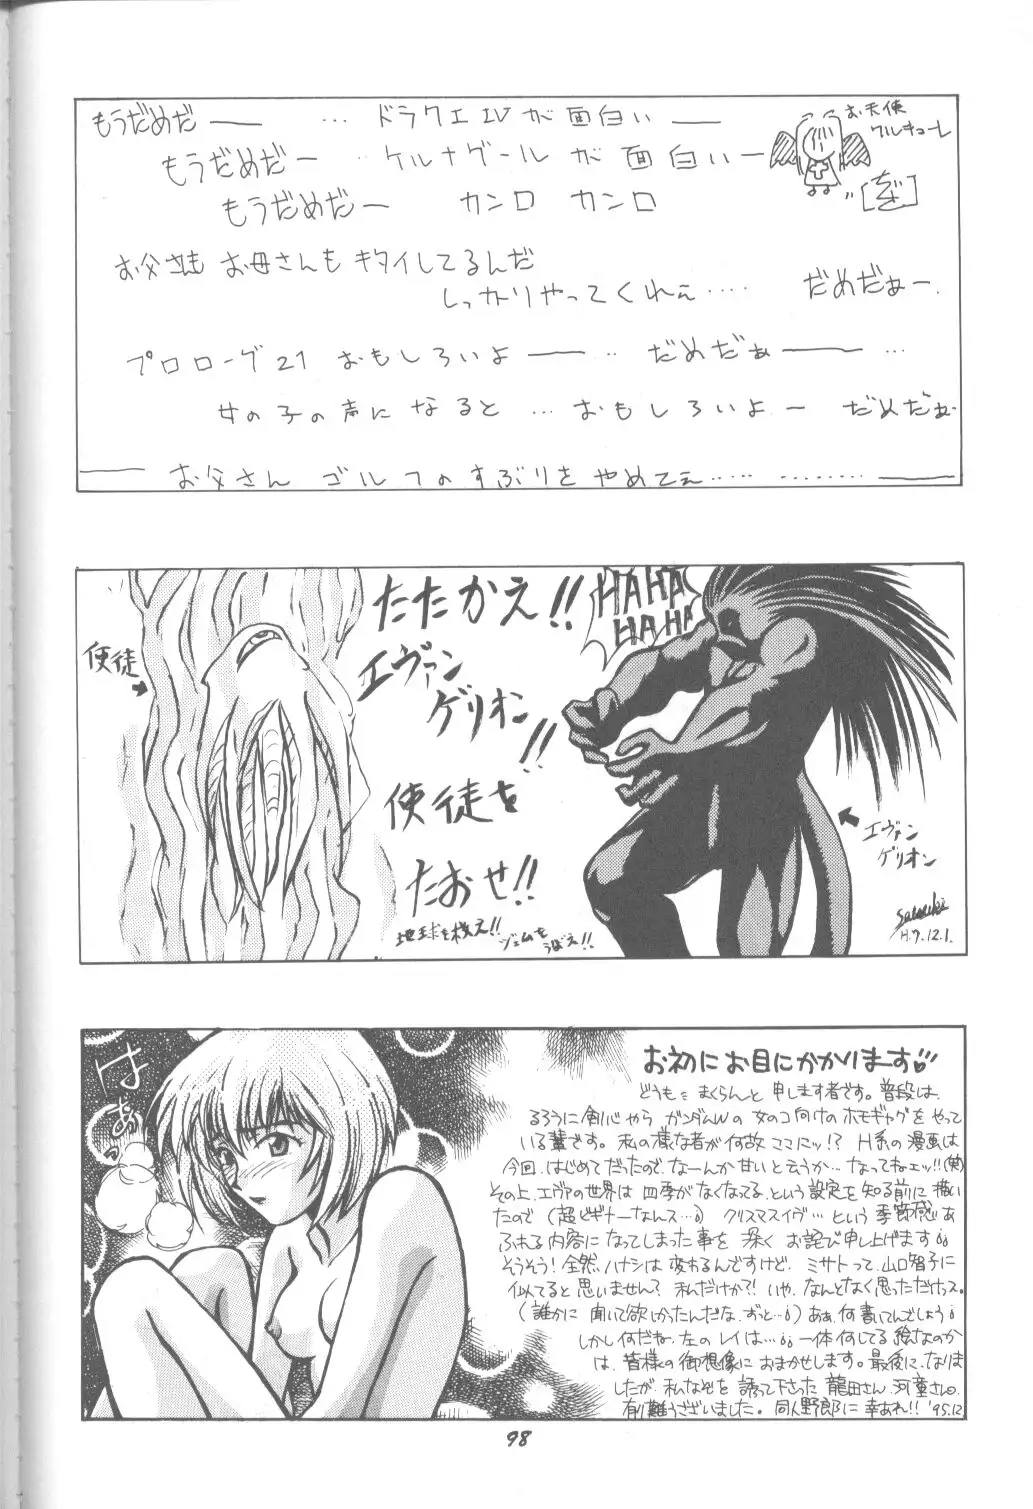 もうだめだ―― … ドラクエⅣが面白い――
お天使
クルキューレ
もうだめだー … ケルナグールが面白いー
もうだめだー カンロ カンロ
お父さまも お母さんもキタイしてるんだ
しっかりやってくれぇ‥‥ だめだぁー.
プロローグ21 おもしろいよ――… だめだぁ――…
女の子の声になると … おもしろいよー だめだぁ…
――お父さん ゴルフのすぶりをやめてぇ…… ………――
使徒
たたかえ!!
エヴァン
ゲリオン!!
使徒を
たおせ!!
地球を救え!!
ジェムをうばえ!!
HAHA
HAHA
エヴァン
ゲリオン
H.7.12.1.
はぁ
お初にお目にかかります
どうも まくらんと申します者です。普段は、
るろうに剣心やら ガンダムWの 女のコ向けのホモギャグをやって
いる輩です。私の様な者が何故ここにッ!? H系の漫画は
今回、はじめてだったので、なーんか甘いと云うか…なってねェッ!!(笑)
その上、エヴァの世界は 四季がなくなってる、という設定を知る前に描い
たので(超ビギナーなんス…) クリスマスイヴ…という季節感あ
ふれる内容になってしまった事を 深く お詫び申し上げます
そうそう!全然、ハナシは変わるんですけど、ミサトって、山口智子に
似てると思いません?私だけか?!いや、なんとなく思っただけっス。
(誰かに聞いて欲しかったんだな、ずっと…)あぁ、何書いてんでしょう
しかし何だね、左のレイは… 一体何してる絵なのか
は、皆様の御想像におまかせします。最後に、なりま
したが、私なぞを 誘って下さった 龍田さん、河童さん。
有難うございました。同人野郎に幸あれ!! '95.12
98